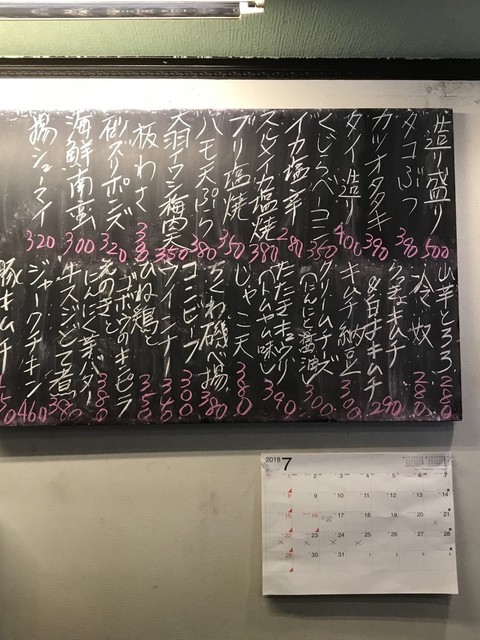 造り盛り 500
タコぶつ 380
カツオタタキ 390
タイ造り 400
くじらベーコン 350
イカ塩辛 280
スルメイカ塩焼 380
ブリ塩焼 350
ハモ天ぷら 380
大羽イワシ梅肉 350
板わさ
砂ズリポンズ 320
海鮮南蛮 300
揚シューマイ 320
山芋とろろ 280
冷奴 280
白菜キムチ
キムチ 290
キムチ納豆
クリームチーズ
のにんにく醤油 300
たたきキュウリ
のトムヤム味 390
じゃこ天 380
ちくわ磯べ揚 380
コンビーフ 300
ウインナー 300
ひね鶏と
ゴボウのキンピラ
えのきと
にんにく芽バター 380
牛スジどて煮 380
ジャークチキン 460
豚キムチ
2018 7
1 2 3 4 5 6 7
8 9 10 11 12 13 14
15 16 17 18 19 20 21
22 23 24 25 26 27 28
29 30 31